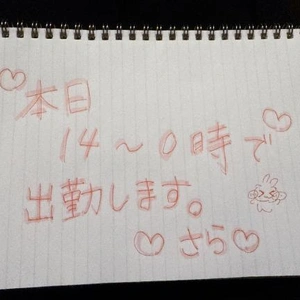 本日
14〜0時で
出勤します。
♡さら♡